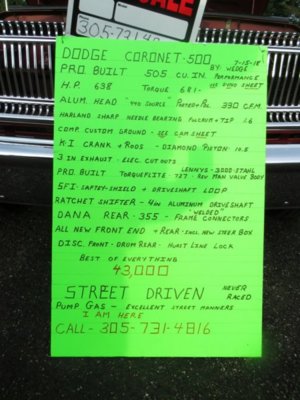 SALE
305-731-48
DODGE CORONET-500 7-15-18
PRO. BUILT 505 CU. IN. BY: WEDGE PERFORMANCE
H.P. 638 TORQUE 681- SEE DYNO SHEET
ALUM. HEAD 440 SOURCE PORTED + POL. 330 C.F.M.
HARLAND SHARP NEEDLE BEARING FULCRUM + TIP 1.6
COMP. CUSTOM GROUND - SEE CAM SHEET
K-1 CRANK + RODS - DIAMOND PISTON - 10.5
3 IN EXHAUST - ELEC. CUT OUTS
PRO. BUILT TORQUEFLITE 727 - LENNYS - 3000 - STAHL REV. MAN VALVE BODY
SFI - SAFTEY-SHIELD + DRIVESHAFT LOOP
RATCHET SHIFTER - 4IN ALUMINUM DRIVESHAFT
DANA REAR - 355 - "WELDED" FRAME CONNECTORS
ALL NEW FRONT END + REAR - INCL. NEW STEER BOX
DISC. FRONT - DRUM REAR - HURST LINE LOCK
BEST OF EVERYTHING
43,000
STREET DRIVEN NEVER RACED
PUMP GAS - EXCELLENT STREET MANNERS
I AM HERE
CALL - 305-731-4816